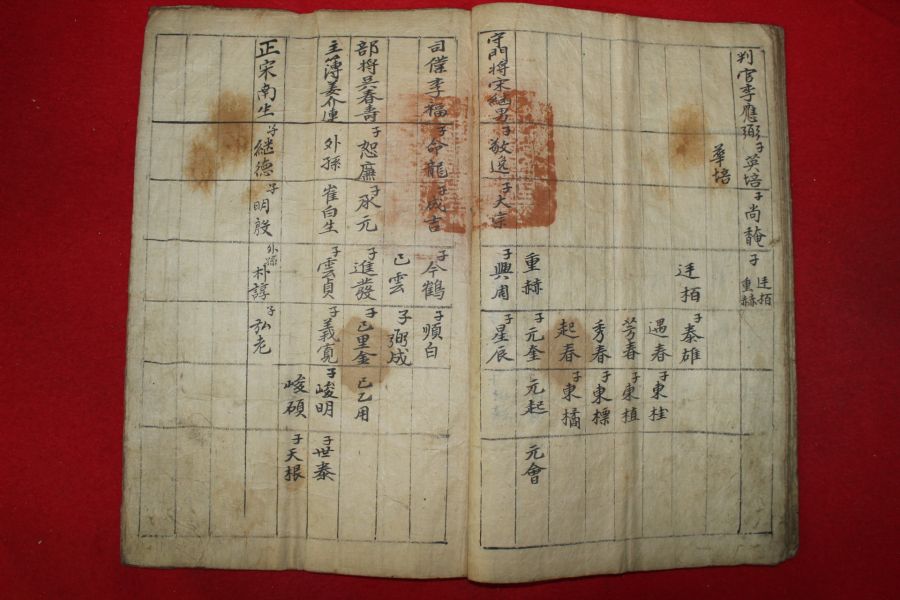 判官李應弼 子英培 子尚馣 子廷栢 重赫
華培
廷栢 子泰雄
遇春 子東桂
芳春 子東植
秀春 子東標
起春 子東橘
重赫 子元奎 元起 元會
守門將宋継男 子敬逸 子大宗 子興周 子星辰
司僕李福 子命龍 子成吉 子今鶴 子順白
已雲 子弼成
部將吳春壽 子恕廉 子承元 子進發 子已里金 已乙用
主簿姜介連 外孫 崔白生 子雲貞 子義寛 子峻明 子世泰
峻碩 子天根
正宋南生 子継德 子明殷 外孫朴諄 子弘老